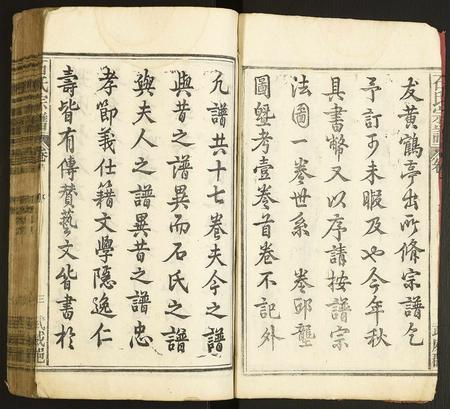 友黃鶴亭出所修宗譜乞
予訂予未暇及也今年秋
具書幣又以序請按譜宗
法圖一卷世系　卷邱壟
圖墾考壹卷首卷不記外
凡譜共十七卷夫今之譜
與昔之譜異而石氏之譜
與夫人之譜異昔之譜忠
孝節義仕籍文學隱逸仁
壽皆有傳贊藝文皆書於
石氏宗譜
卷
三
武威